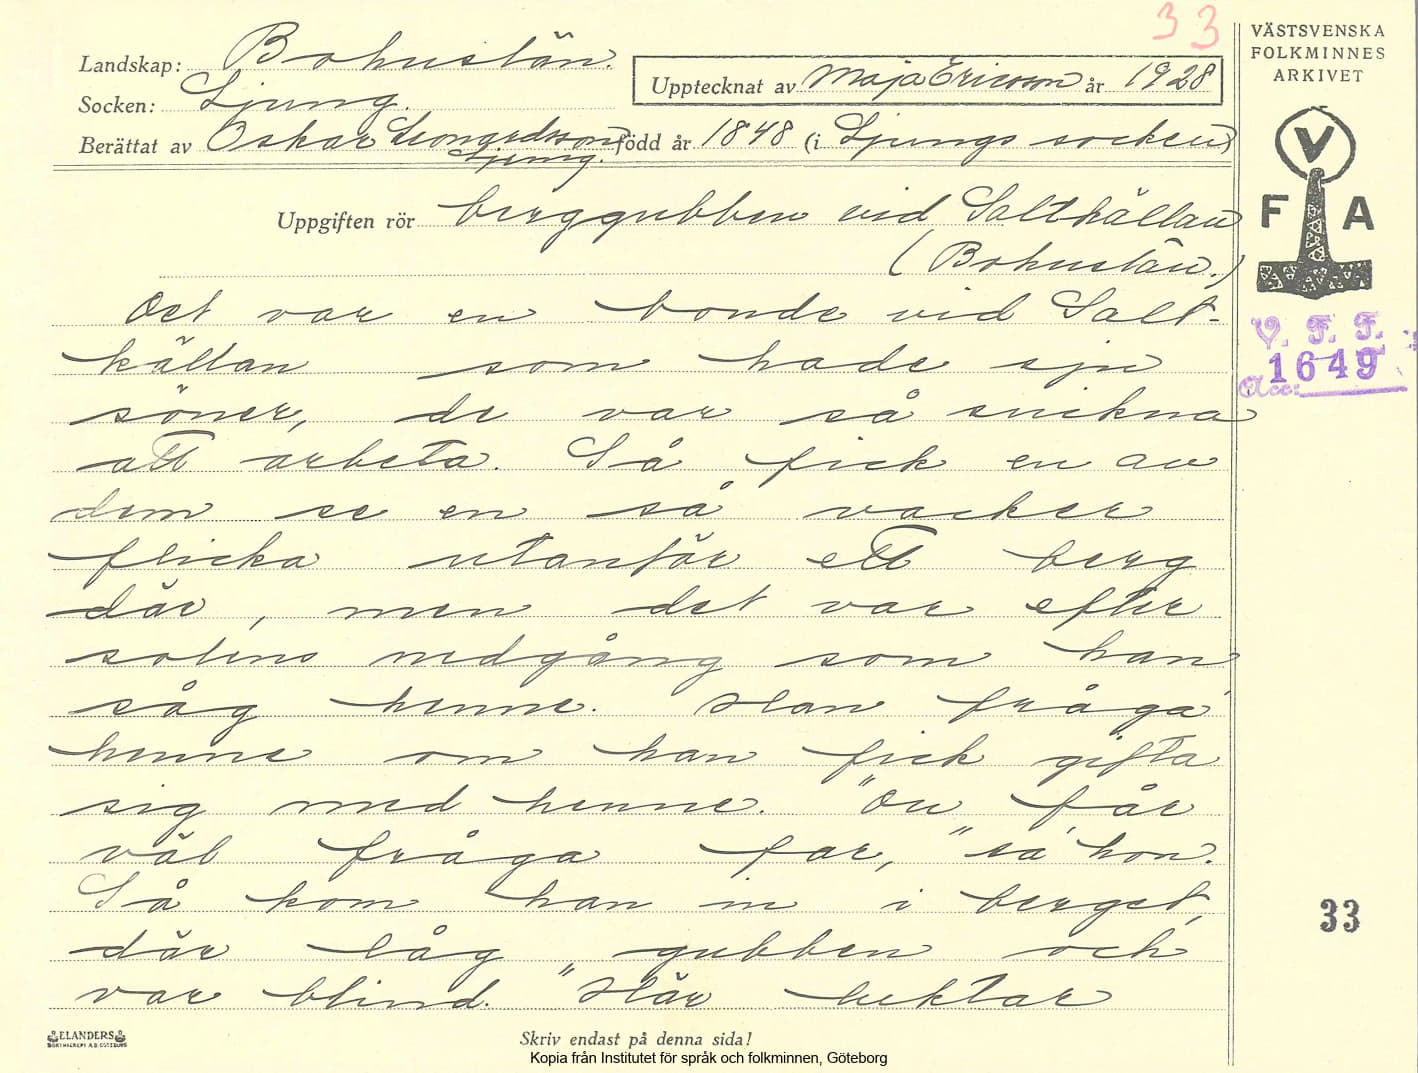 33
Landskap: Bohuslän.
Socken: Ljung.
Upptecknat av Maja Ericson år 1928
Berättat av Oskar Leonardsson född år 1848 (i Ljungs socken)
Ljung.
Uppgiften rör berggubben vid Saltkällan
(Bohuslän.)
Det var en bonde vid Salt-
källan som hade sju
söner, de var så snikna
att arbeta. Så fick en av
dem se en så vacker
flicka utanför ett berg
där, men det var efter
solens nedgång som han
såg henne. Han fråga'
henne om han fick gifta
sig med henne. "Du får
väl fråga far," sa hon.
Så kom han in i berget,
där låg gubben och
var blind. "Här luktar
VÄSTSVENSKA
FOLKMINNES
ARKIVET
V
F A
V. F. F.
1649
Acc:
33
ELANDERS
BOKTRYCKERI A.B. GÖTEBORG
Skriv endast på denna sida!
Kopia från Institutet för språk och folkminnen, Göteborg